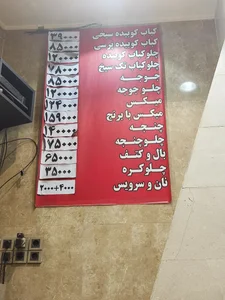 کباب کوبیده سیخی ۳۹۰۰۰
کباب کوبیده پرسی ۸۵۰۰۰
چلوکباب کوبیده ۱۲۰۰۰۰
چلوکباب یک سیخ ۷۸۰۰۰
جوجه ۸۵۰۰۰
چلو جوجه ۱۲۰۰۰۰
میکس ۱۲۴۰۰۰
میکس با برنج ۱۵۹۰۰۰
چنجه ۱۴۰۰۰۰
چلوچنجه ۱۷۵۰۰۰
بال و کتف ۶۵۰۰۰
چلوکره ۳۵۰۰۰
نان و سرویس ۲۰۰۰+۴۰۰۰